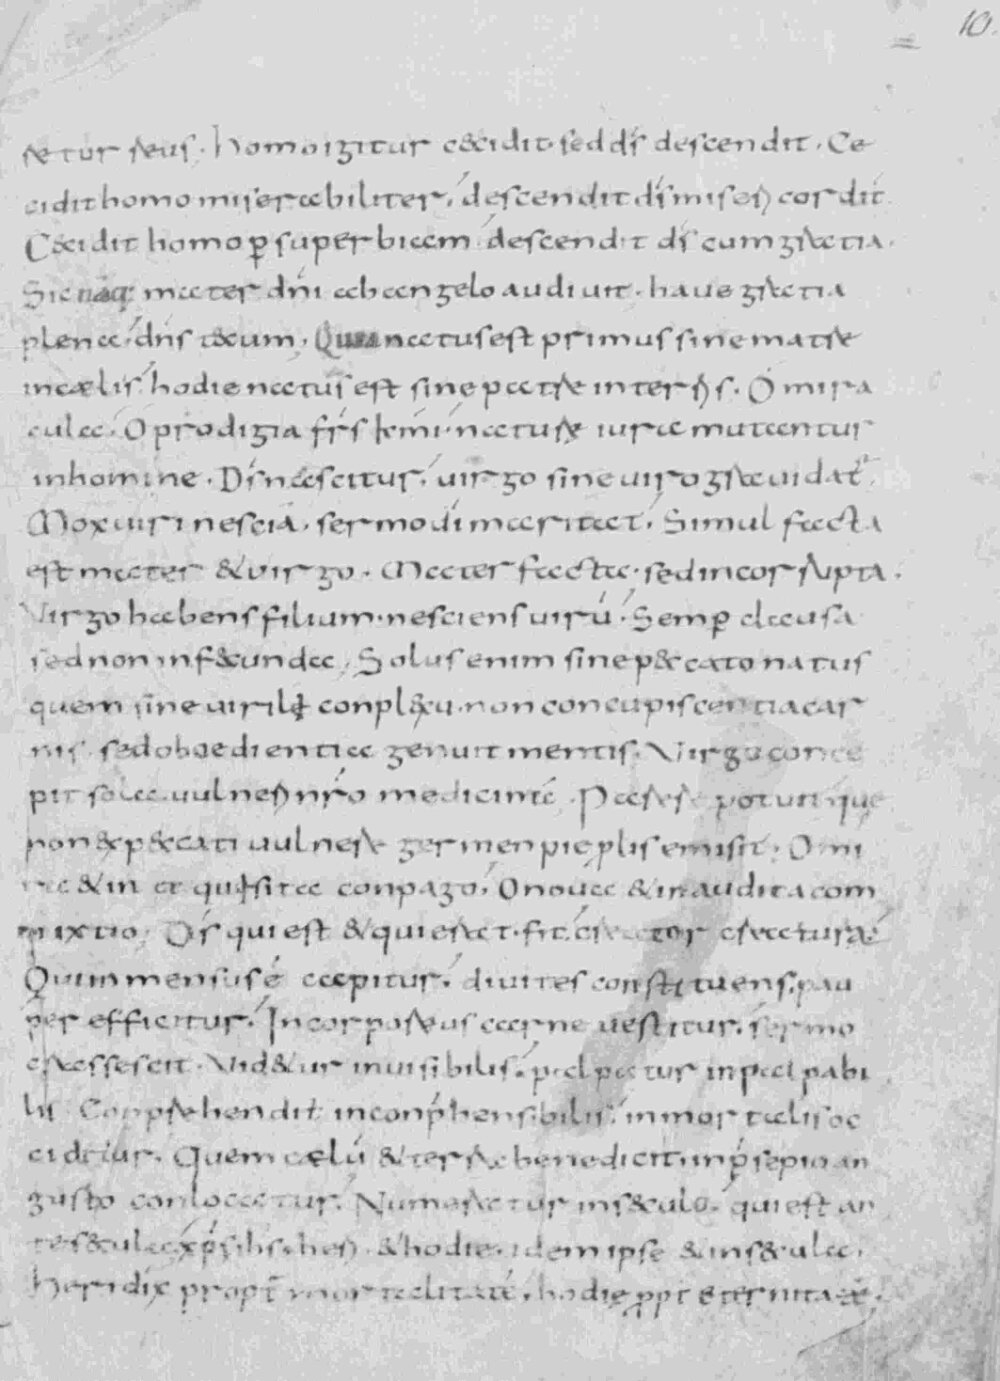 10.
retur reus. homo igitur cecidit. sed ds descendit. Ce
cidit homo miserabiliter, descendit ds misericordit
Cecidit homo p superbiam, descendit ds cum gratia.
Sic nāq; mater dni ab angelo audiuit. haue gratia
plena, dns tecum. Quia natus est primus sine matre
in cælis, hodie natus est sine patre in terris. O mira
cula, O prodigia frs kmi. naturę iura mutantur
in homine. Ds nascitur, uirgo sine uiro grauidat,
Mox uiri nescia, sermo di maritat, Simul facta
est mater & uirgo. Mater facta, sed incorrupta.
Virgo habens filium, nesciens uirū, Semp clausa
sed non infecunda, Solus enim sine peccato natus
quem sine uirilę conplexu. non concupiscentia car
nis sed oboedientia genuit mentis. Virgo conce
pit sola uulneri nro medicinā. Parere potuit que
non ex peccati uulnere germen pie plis emisit. O mi
ra & in et quęsita conpago, O noua & inaudita com
mixtio. Ds qui est & qui erat. fit creator creatura,
Qui inmensus ē capitur, diuites constituens, pau
per efficitur, Incorporeus carne uestitur, sermo
crassescit. Videtur inuisibilis, palpatur inpalpabi
lis Conprehendit inconphensibilis, inmortalis oc
ciditur. Quem cælū & terra benedicit, in psepio an
gusto conlocatur, Numeratur in seculo, qui est an
te secula xps ihs. heri & hodie. idem ipse & in secula.
heri dix propt mortalitatē, hodie ppt eternitatē.